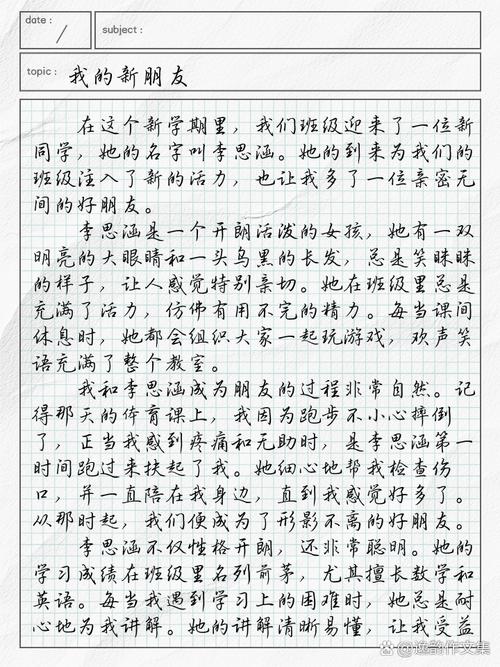 date:
/
subject:
topic: 我的新朋友
在这个新学期里，我们班级迎来了一位新
同学，她的名字叫李思涵。她的到来为我们的
班级注入了新的活力，也让我多了一位亲密无
间的好朋友。
李思涵是一个开朗活泼的女孩，她有一双
明亮的大眼睛和一头乌黑的长发，总是笑眯眯
的样子，让人感觉特别亲切。她在班级里总是
充满了活力，仿佛有用不完的精力。每当课间
休息时，她都会组织大家一起玩游戏，欢声笑
语充满了整个教室。
我和李思涵成为朋友的过程非常自然。记
得那天的体育课上，我因为跑步不小心摔倒
了，正当我感到疼痛和无助时，是李思涵第一
时间跑过来扶起了我。她细心地帮我检查伤
口，并一直陪在我身边，直到我感觉好多了。
从那时起，我们便成为了形影不离的好朋友。
李思涵不仅性格开朗，还非常聪明。她的
学习成绩在班级里名列前茅，尤其擅长数学和
英语。每当我遇到学习上的困难时，她总是耐
心地为我讲解。她的讲解清晰易懂，让我受益
逸韵作文集